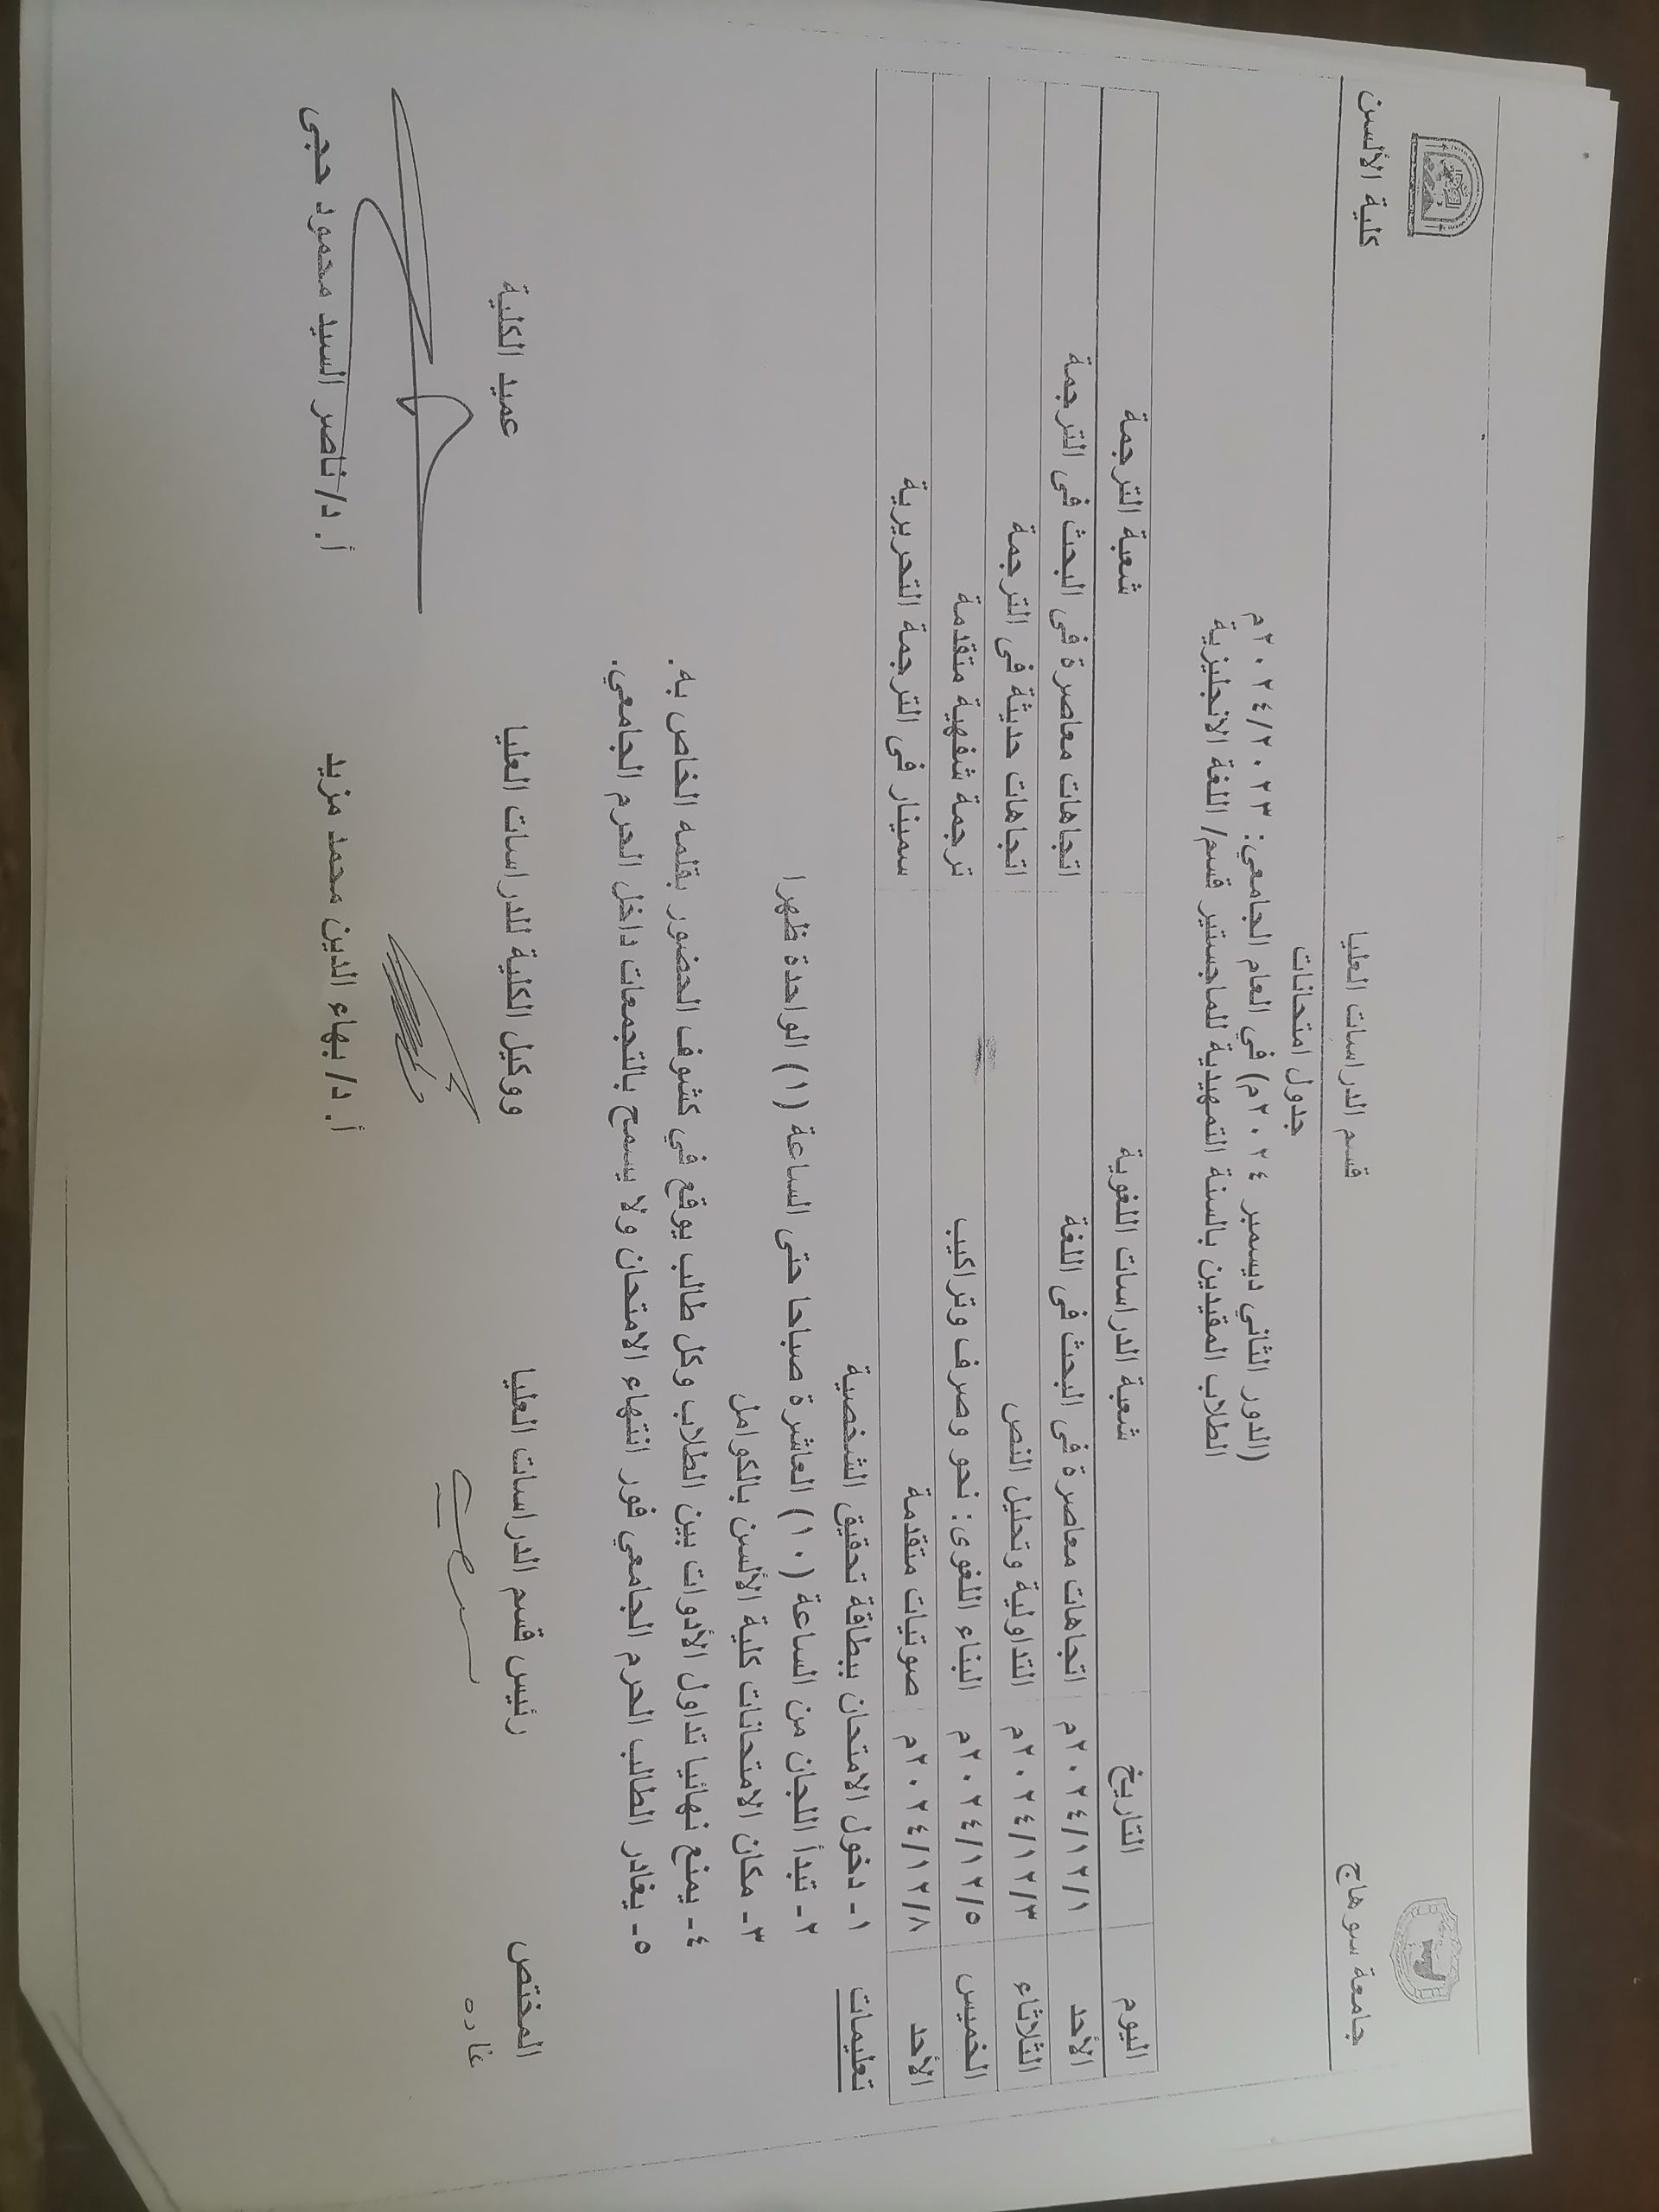 جامعة سوهاج
قسم الدراسات العليا
كلية الألسن
جدول امتحانات
(الدور الثاني ديسمبر ٢٠٢٤م) في العام الجامعي: ٢٠٢٤/٢٠٢٣م
الطلاب المقيدين بالسنة التمهيدية للماجستير قسم/ اللغة الانجليزية
اليوم التاريخ شعبة الدراسات اللغوية شعبة الترجمة
الأحد ٢٠٢٤/١٢/١م اتجاهات معاصرة فى البحث فى اللغة اتجاهات معاصرة فى البحث فى الترجمة
الثلاثاء ٢٠٢٤/١٢/٣م التداولية وتحليل النص اتجاهات حديثة فى الترجمة
الخميس ٢٠٢٤/١٢/٥م البناء اللغوى: نحو وصرف وتراكيب ترجمة شفهية متقدمة
الأحد ٢٠٢٤/١٢/٨م صوتيات متقدمة سمينار فى الترجمة التحريرية
تعليمات
١- دخول الامتحان ببطاقة تحقيق الشخصية
٢- تبدأ اللجان من الساعة (١٠) العاشرة صباحا حتى الساعة (١) الواحدة ظهرا
٣- مكان الامتحانات كلية الألسن بالكوامل
٤- يمنع نهائيا تداول الأدوات بين الطلاب وكل طالب يوقع في كشوف الحضور بقلمه الخاص به.
٥- يغادر الطالب الحرم الجامعي فور انتهاء الامتحان ولا يسمح بالتجمعات داخل الحرم الجامعي.
المختص رئيس قسم الدراسات العليا ووكيل الكلية للدراسات العليا عميد الكلية
غاده
أ.د/ بهاء الدين محمد مزيد أ.د/ ناصر السيد محمود حجى